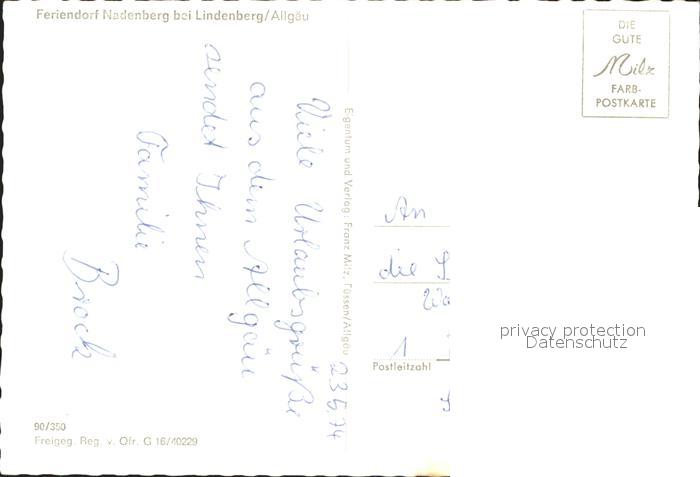 Feriendorf Nadenberg bei Lindenberg/Allgäu
DIE
GUTE
Milz
FARB-
POSTKARTE
23.5.74
Viele Urlaubsgrüße
aus dem Allgäu
sendet Ihnen
Familie
Brock
Eigentum und Verlag: Franz Milz, Füssen/Allgäu
An
die
1
Postleitzahl
privacy protection
Datenschutz
90/350
Freigeg. Reg. v. Ofr. G 16/40229